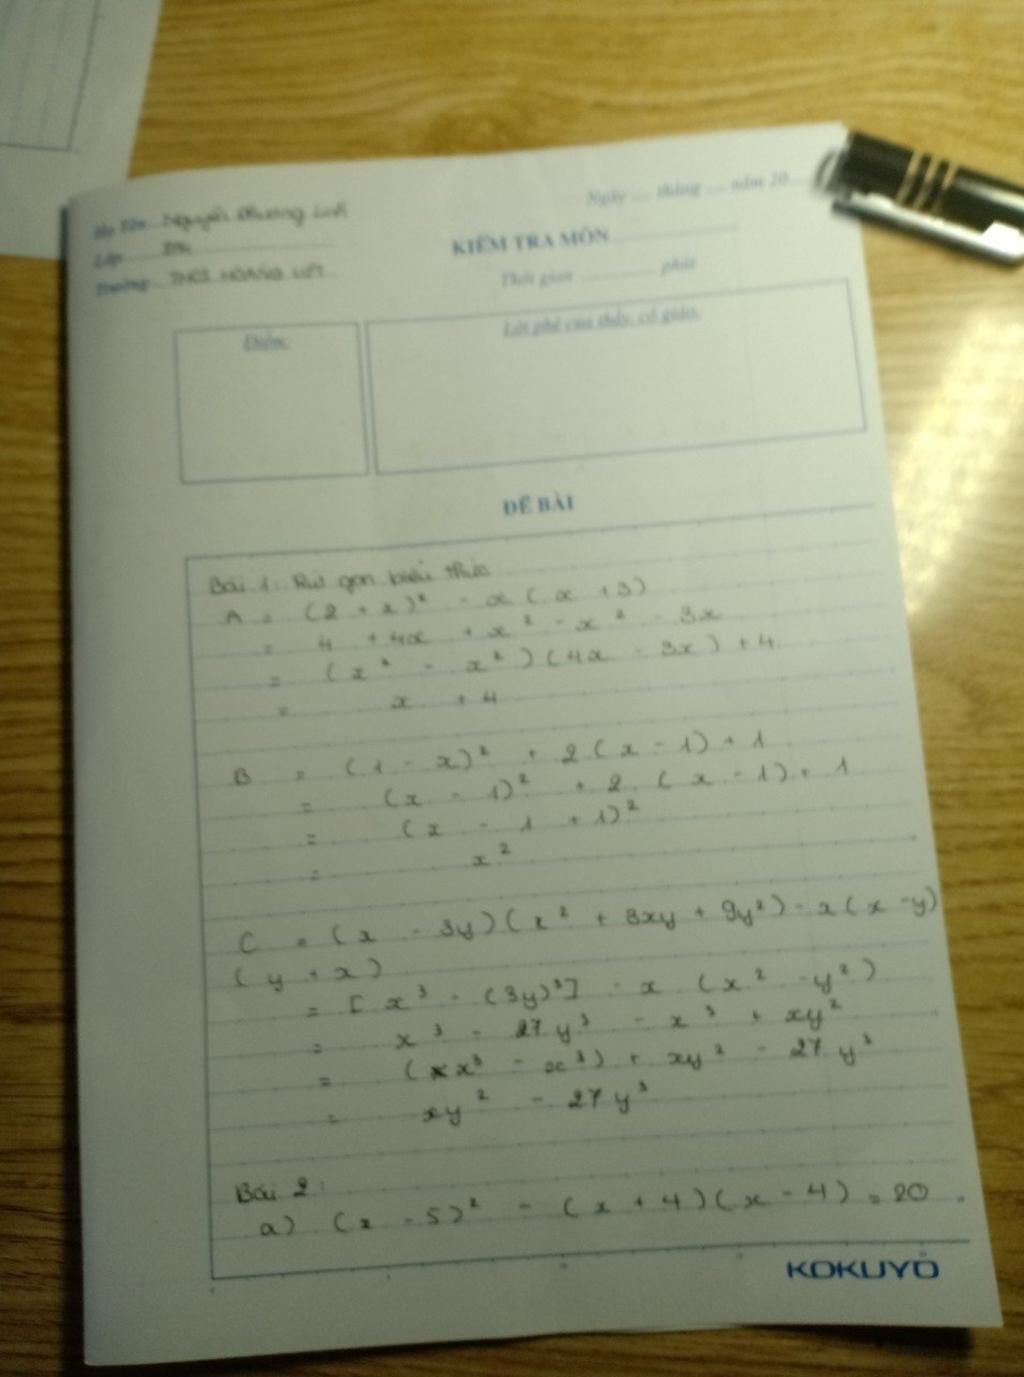 Họ Tên Nguyễn Phương Linh
Lớp
Trường THCS HOÀNG LIỆT
Ngày .... tháng .... năm 20
KIỂM TRA MÔN
Thời gian ............ phút
Điểm:
Lời phê của thầy, cô giáo.
ĐỀ BÀI
Bài 1: Rút gọn biểu thức
A = (2 + x)² - x ( x + 3)
= 4 + 4x + x² - x² - 3x
= (x² - x²) (4x - 3x) + 4
= x + 4
B = (1 - x)² + 2 (x - 1) + 1
= (x - 1)² + 2. (x - 1) + 1
= (x - 1 + 1)²
= x²
C = (x - 3y)(x² + 3xy + 9y²) - x(x - y)
(y + x)
= [x³ - (3y)³] - x (x² - y²)
= x³ - 27y³ - x³ + xy²
= (x³ - x³) + xy² - 27y³
= xy² - 27y³
Bài 2:
a) (x - 5)² - (x + 4)(x - 4) = 20
KOKUYO